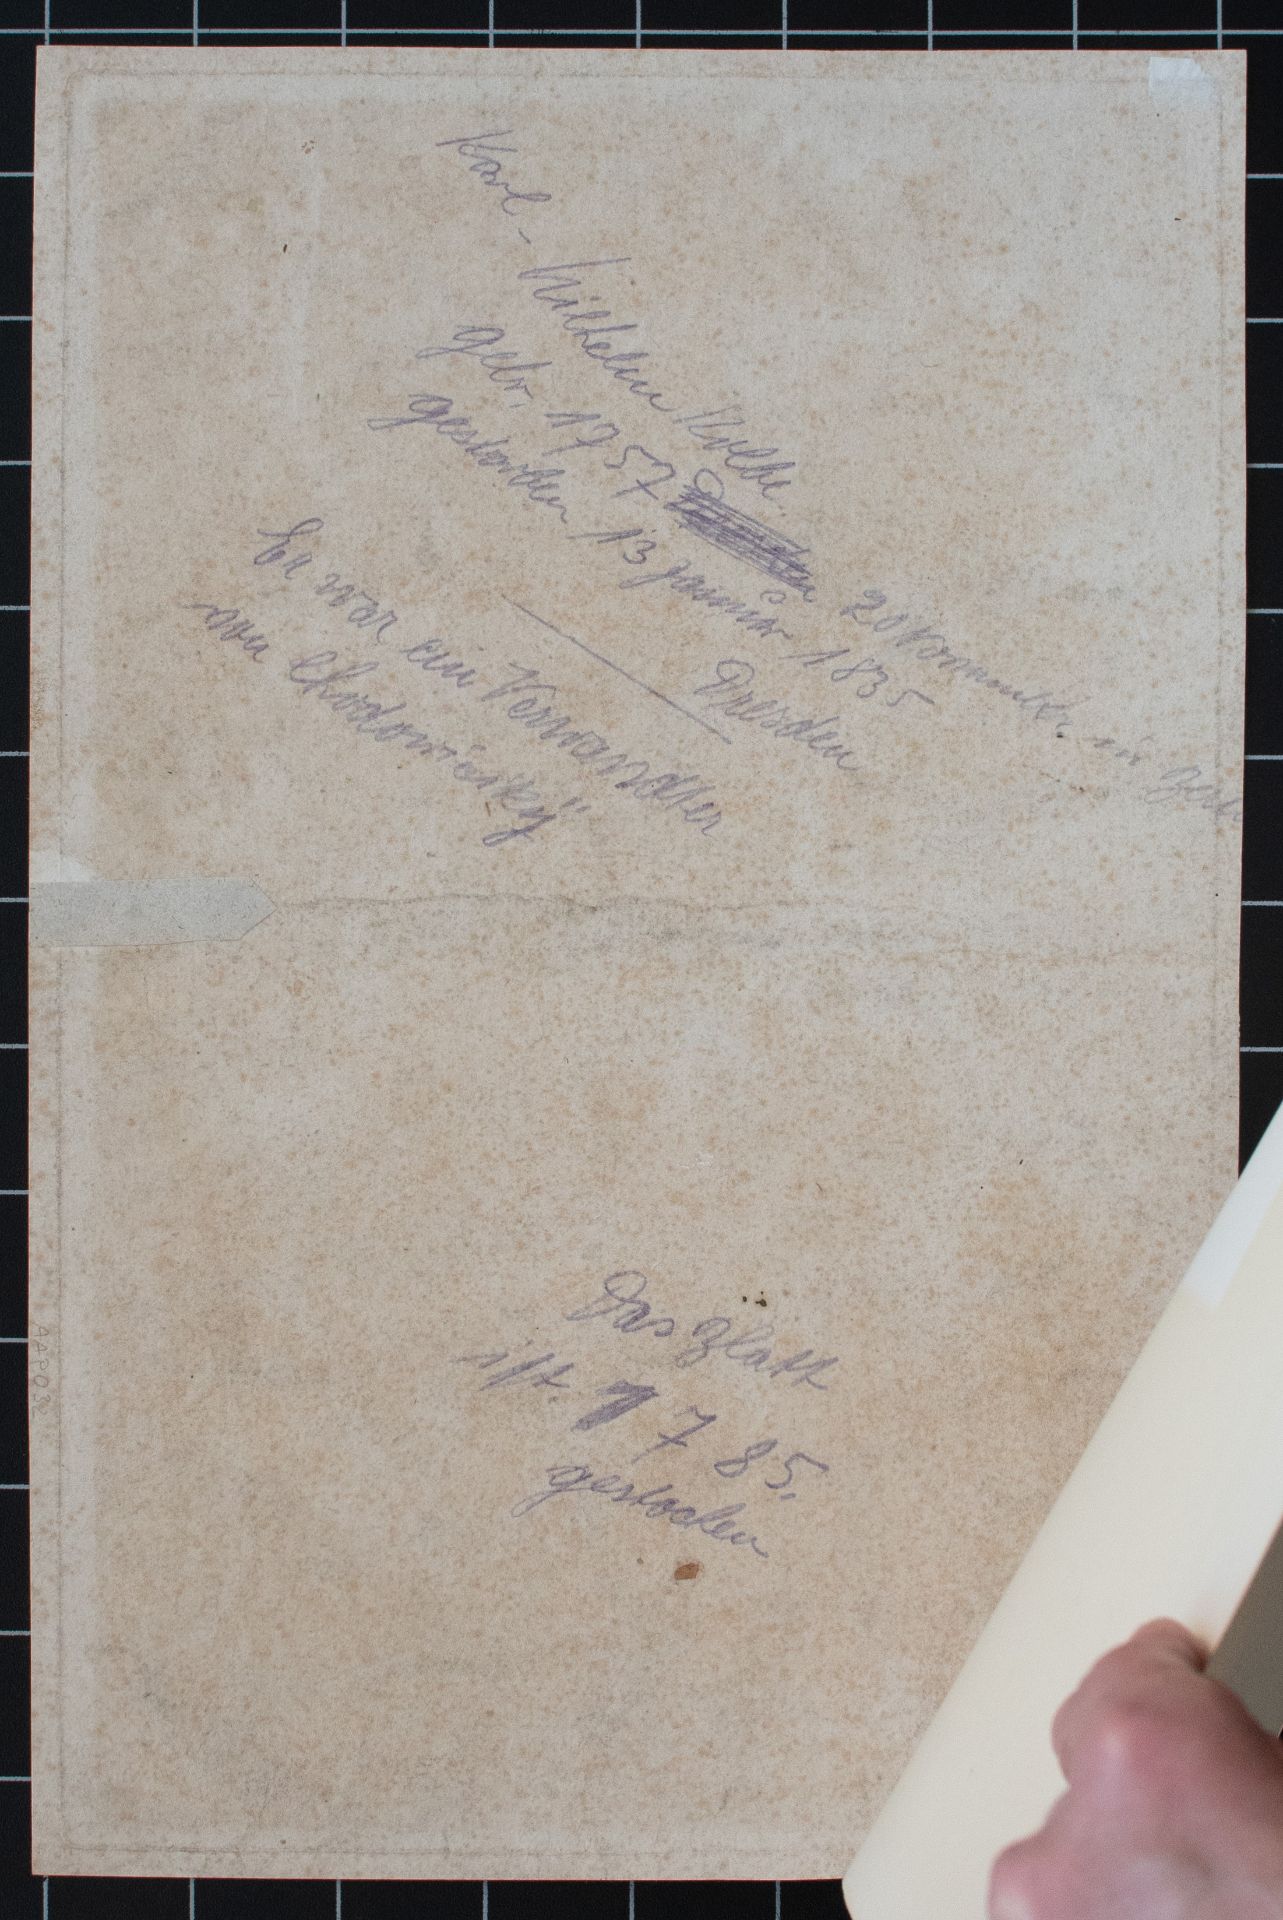 Karl - Wilhelm Kolbe.
gebr. 1757 20 November in Berl
gestorben 13 januar 1835
Dresden
Er war ein Verwandter
von Chodowiesky
Das Blatt
ist. 1785.
gestochen
AAP03